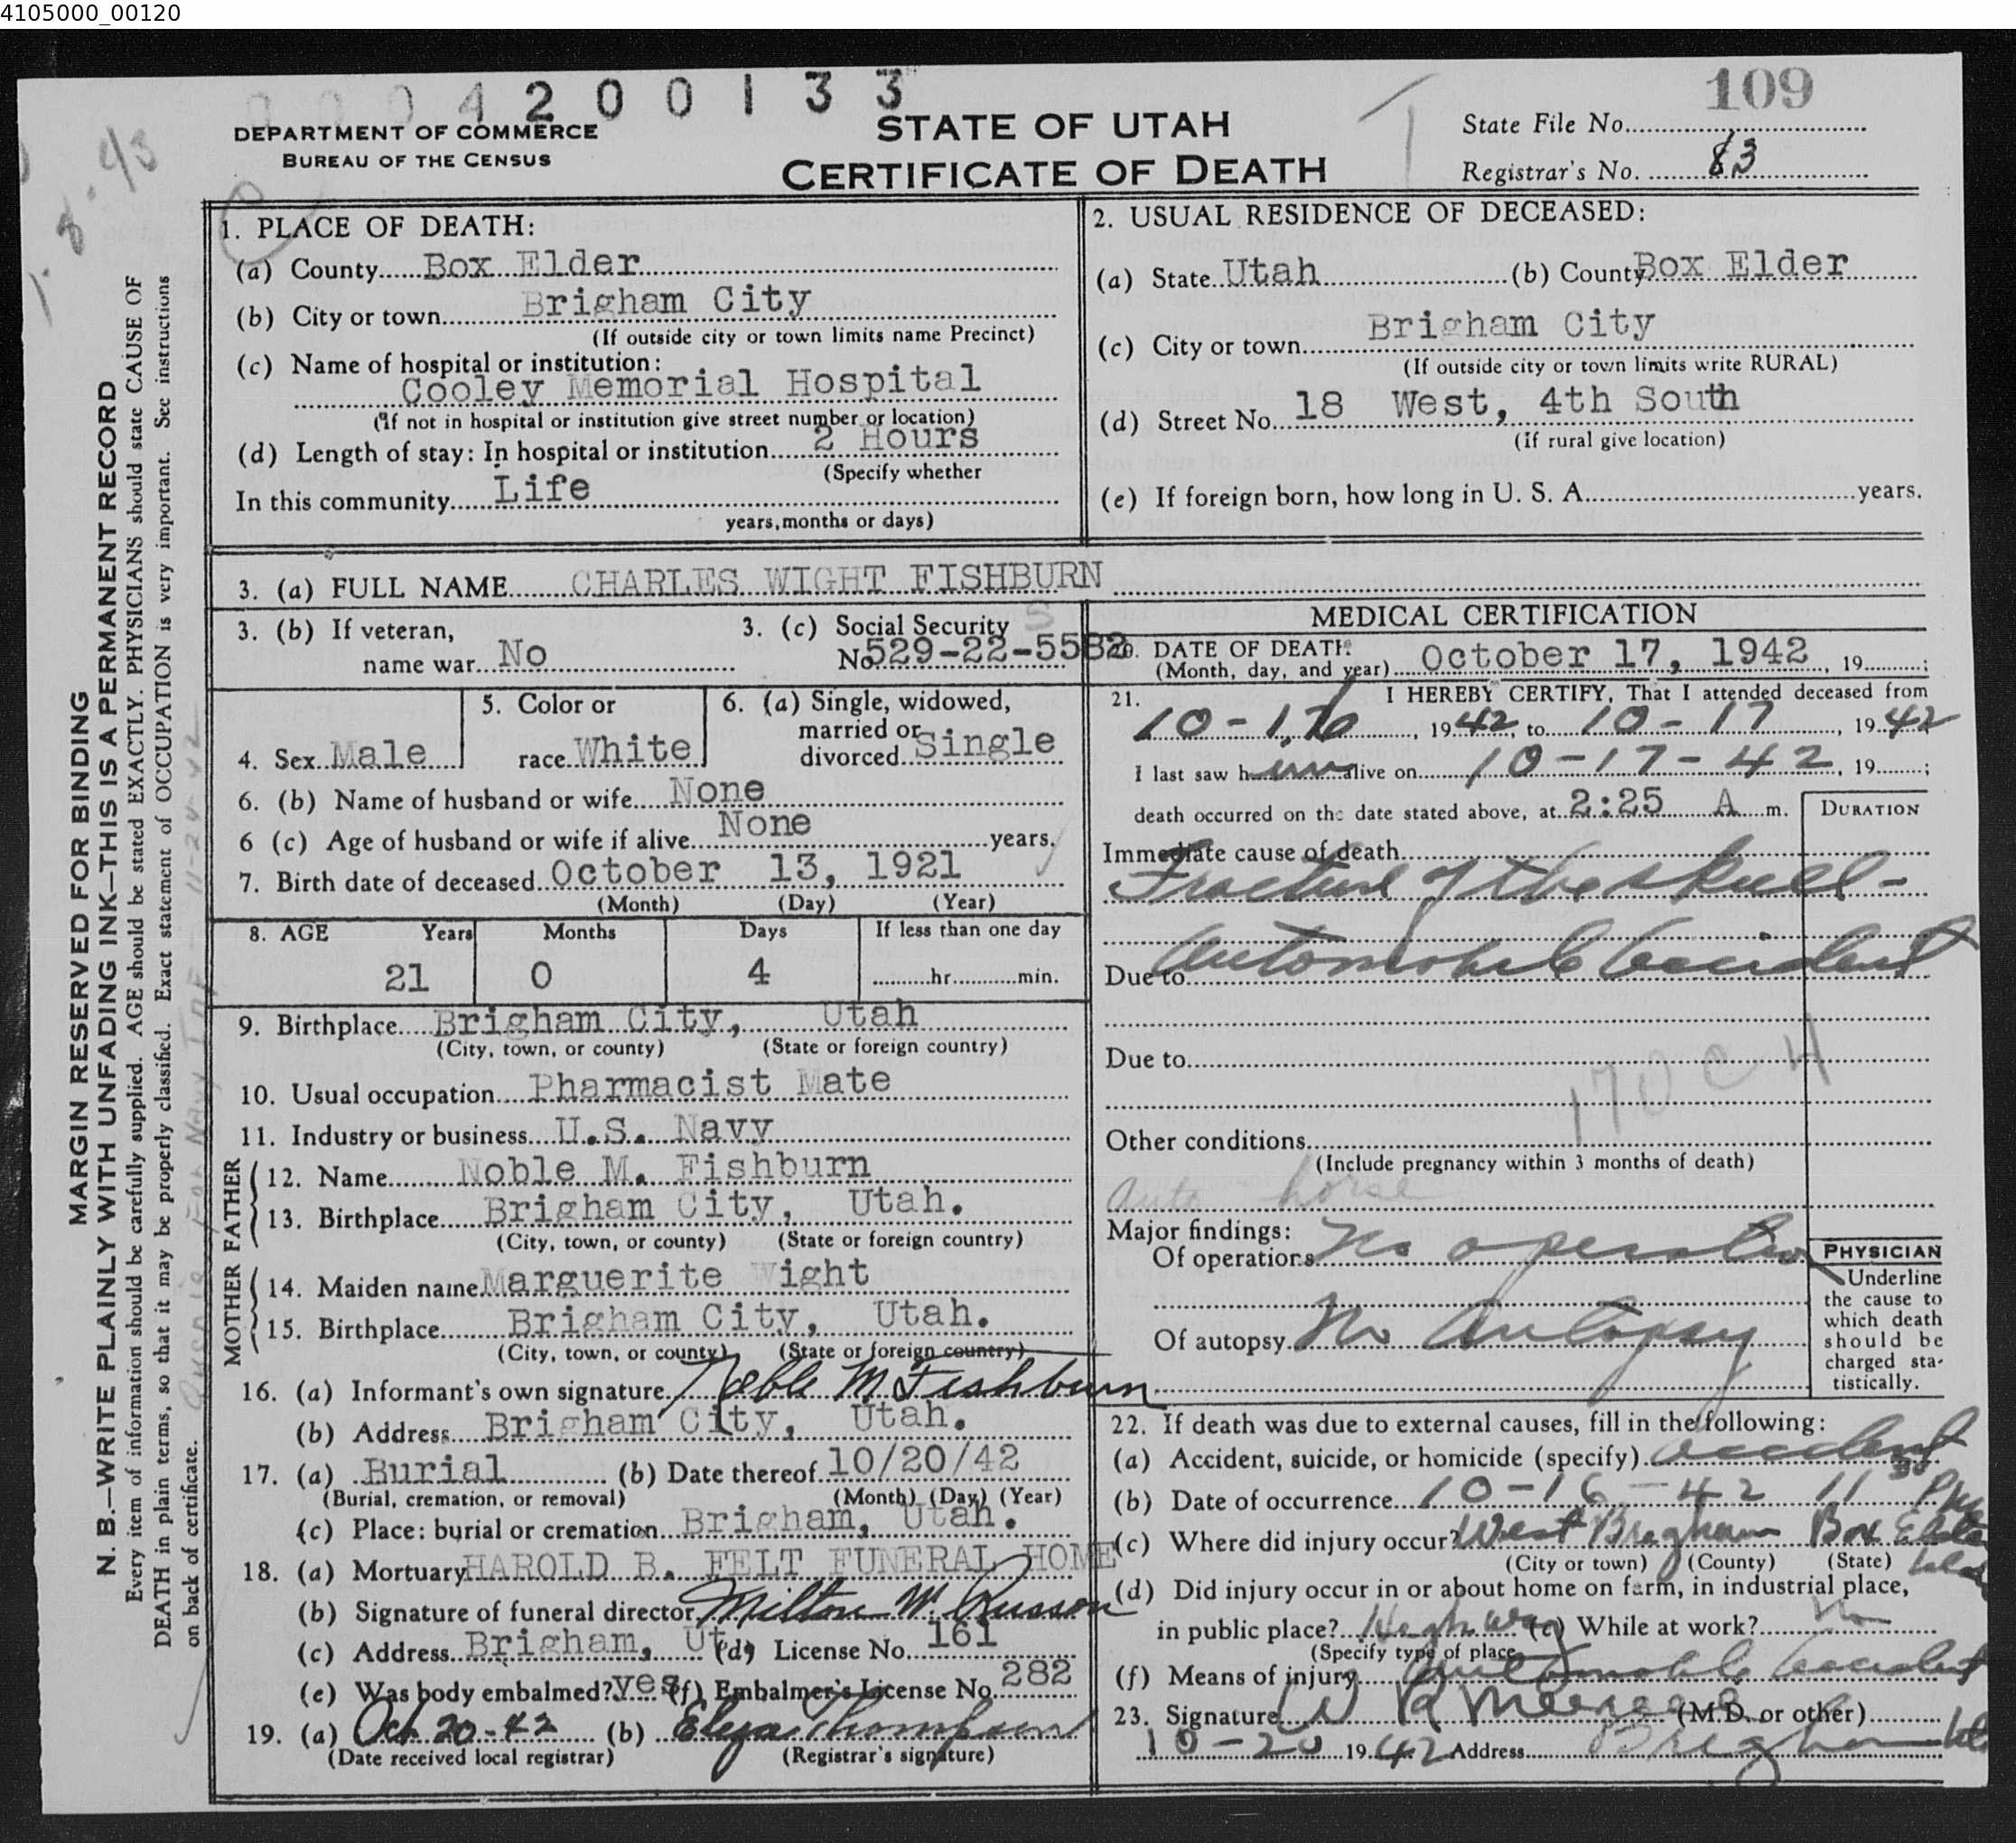 4105000_00120
000420013 3
109
DEPARTMENT OF COMMERCE
BUREAU OF THE CENSUS
STATE OF UTAH
CERTIFICATE OF DEATH
State File No.
Registrar's No. 83
MARGIN RESERVED FOR BINDING
N. B.—WRITE PLAINLY WITH UNFADING INK—THIS IS A PERMANENT RECORD
Every item of information should be carefully supplied. AGE should be stated EXACTLY. PHYSICIANS should state CAUSE OF
DEATH in plain terms, so that it may be properly classified. Exact statement of OCCUPATION is very important. See instructions
on back of certificate.
1. PLACE OF DEATH:
(a) County Box Elder
(b) City or town Brigham City
(If outside city or town limits name Precinct)
(c) Name of hospital or institution:
Cooley Memorial Hospital
(If not in hospital or institution give street number or location)
(d) Length of stay: In hospital or institution 2 Hours
(Specify whether
In this community Life
years, months or days)
2. USUAL RESIDENCE OF DECEASED:
(a) State Utah (b) County Box Elder
(c) City or town Brigham City
(If outside city or town limits write RURAL)
(d) Street No. 18 West, 4th South
(If rural give location)
(e) If foreign born, how long in U. S. A. years.
3. (a) FULL NAME CHARLES WIGHT FISHBURN
3. (b) If veteran,
name war No
3. (c) Social Security
No. 529-22-5582
4. Sex Male
5. Color or
race White
6. (a) Single, widowed,
married or
divorced Single
6. (b) Name of husband or wife None
6 (c) Age of husband or wife if alive None years.
7. Birth date of deceased October 13, 1921
(Month) (Day) (Year)
8. AGE Years Months Days If less than one day
21 0 4 hr. min.
9. Birthplace Brigham City, Utah
(City, town, or county) (State or foreign country)
10. Usual occupation Pharmacist Mate
11. Industry or business U.S. Navy
FATHER
12. Name Noble M. Fishburn
13. Birthplace Brigham City, Utah.
(City, town, or county) (State or foreign country)
MOTHER
14. Maiden name Marguerite Wight
15. Birthplace Brigham City, Utah.
(City, town, or county) (State or foreign country)
16. (a) Informant's own signature Noble M Fishburn
(b) Address Brigham City, Utah.
17. (a) Burial (b) Date thereof 10/20/42
(Burial, cremation, or removal) (Month) (Day) (Year)
(c) Place: burial or cremation Brigham, Utah.
18. (a) Mortuary HAROLD B. FELT FUNERAL HOME
(b) Signature of funeral director Milton W. Russon
(c) Address Brigham, Ut. (d) License No. 161
(e) Was body embalmed? yes (f) Embalmer's License No. 282
19. (a) Oct 20-42 (b) Eliza Thompson
(Date received local registrar) (Registrar's signature)
MEDICAL CERTIFICATION
20. DATE OF DEATH:
(Month, day, and year) October 17, 1942, 19 ;
21. I HEREBY CERTIFY, That I attended deceased from
10-16, 1942, to 10-17, 1942
I last saw him alive on 10-17-42, 19 ;
death occurred on the date stated above, at 2:25 A m.
DURATION
Immediate cause of death
Fracture of the skull -
Due to Automobile Accident
Due to
170 C H
Other conditions
(Include pregnancy within 3 months of death)
auto - horse
Major findings:
Of operations No operation
Of autopsy No Autopsy
PHYSICIAN
Underline
the cause to
which death
should be
charged sta-
tistically.
22. If death was due to external causes, fill in the following:
(a) Accident, suicide, or homicide (specify) accident
(b) Date of occurrence 10-16-42 11 30 PM
(c) Where did injury occur? West Brigham Box Elder
(City or town) (County) (State)
(d) Did injury occur in or about home on farm, in industrial place,
in public place? Highway (e) While at work? No
(Specify type of place)
(f) Means of injury Automobile Accident
23. Signature (M.D. or other)
10-20 1942 Address Brigham